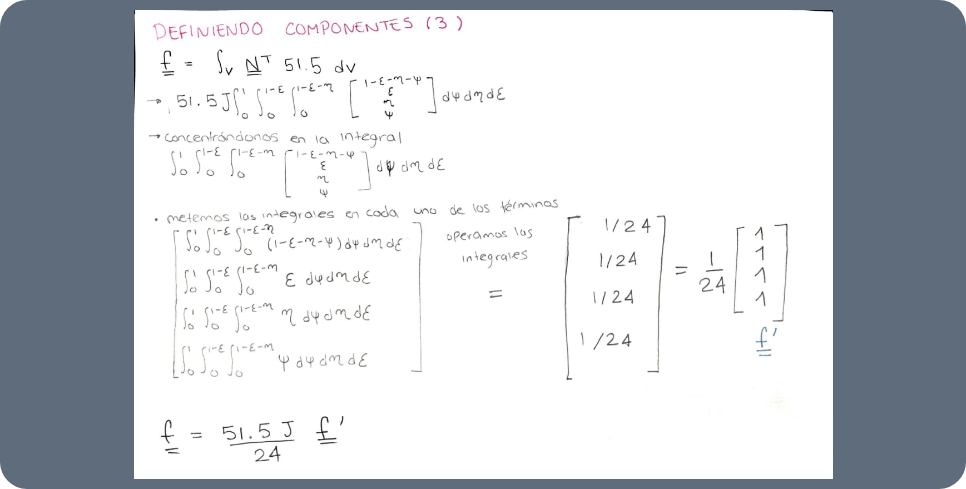 DEFINIENDO COMPONENTES (3)
f = ∫v Nᵀ 51.5 dv
→ 51.5 J ∫₀¹ ∫₀^1-ε ∫₀^1-ε-η [ 1-ε-η-ψ
ε
η
ψ ] dψ dη dε
→ concentrándonos en la integral
∫₀¹ ∫₀^1-ε ∫₀^1-ε-η [ 1-ε-η-ψ
ε
η
ψ ] dψ dη dε
• metemos las integrales en cada uno de los términos
∫₀¹ ∫₀^1-ε ∫₀^1-ε-η (1-ε-η-ψ) dψ dη dε
∫₀¹ ∫₀^1-ε ∫₀^1-ε-η ε dψ dη dε
∫₀¹ ∫₀^1-ε ∫₀^1-ε-η η dψ dη dε
∫₀¹ ∫₀^1-ε ∫₀^1-ε-η ψ dψ dη dε
operamos las
integrales
=
1/24
1/24
1/24
1/24
= 1/24
1
1
1
1
f'
f = 51.5 J / 24 f'